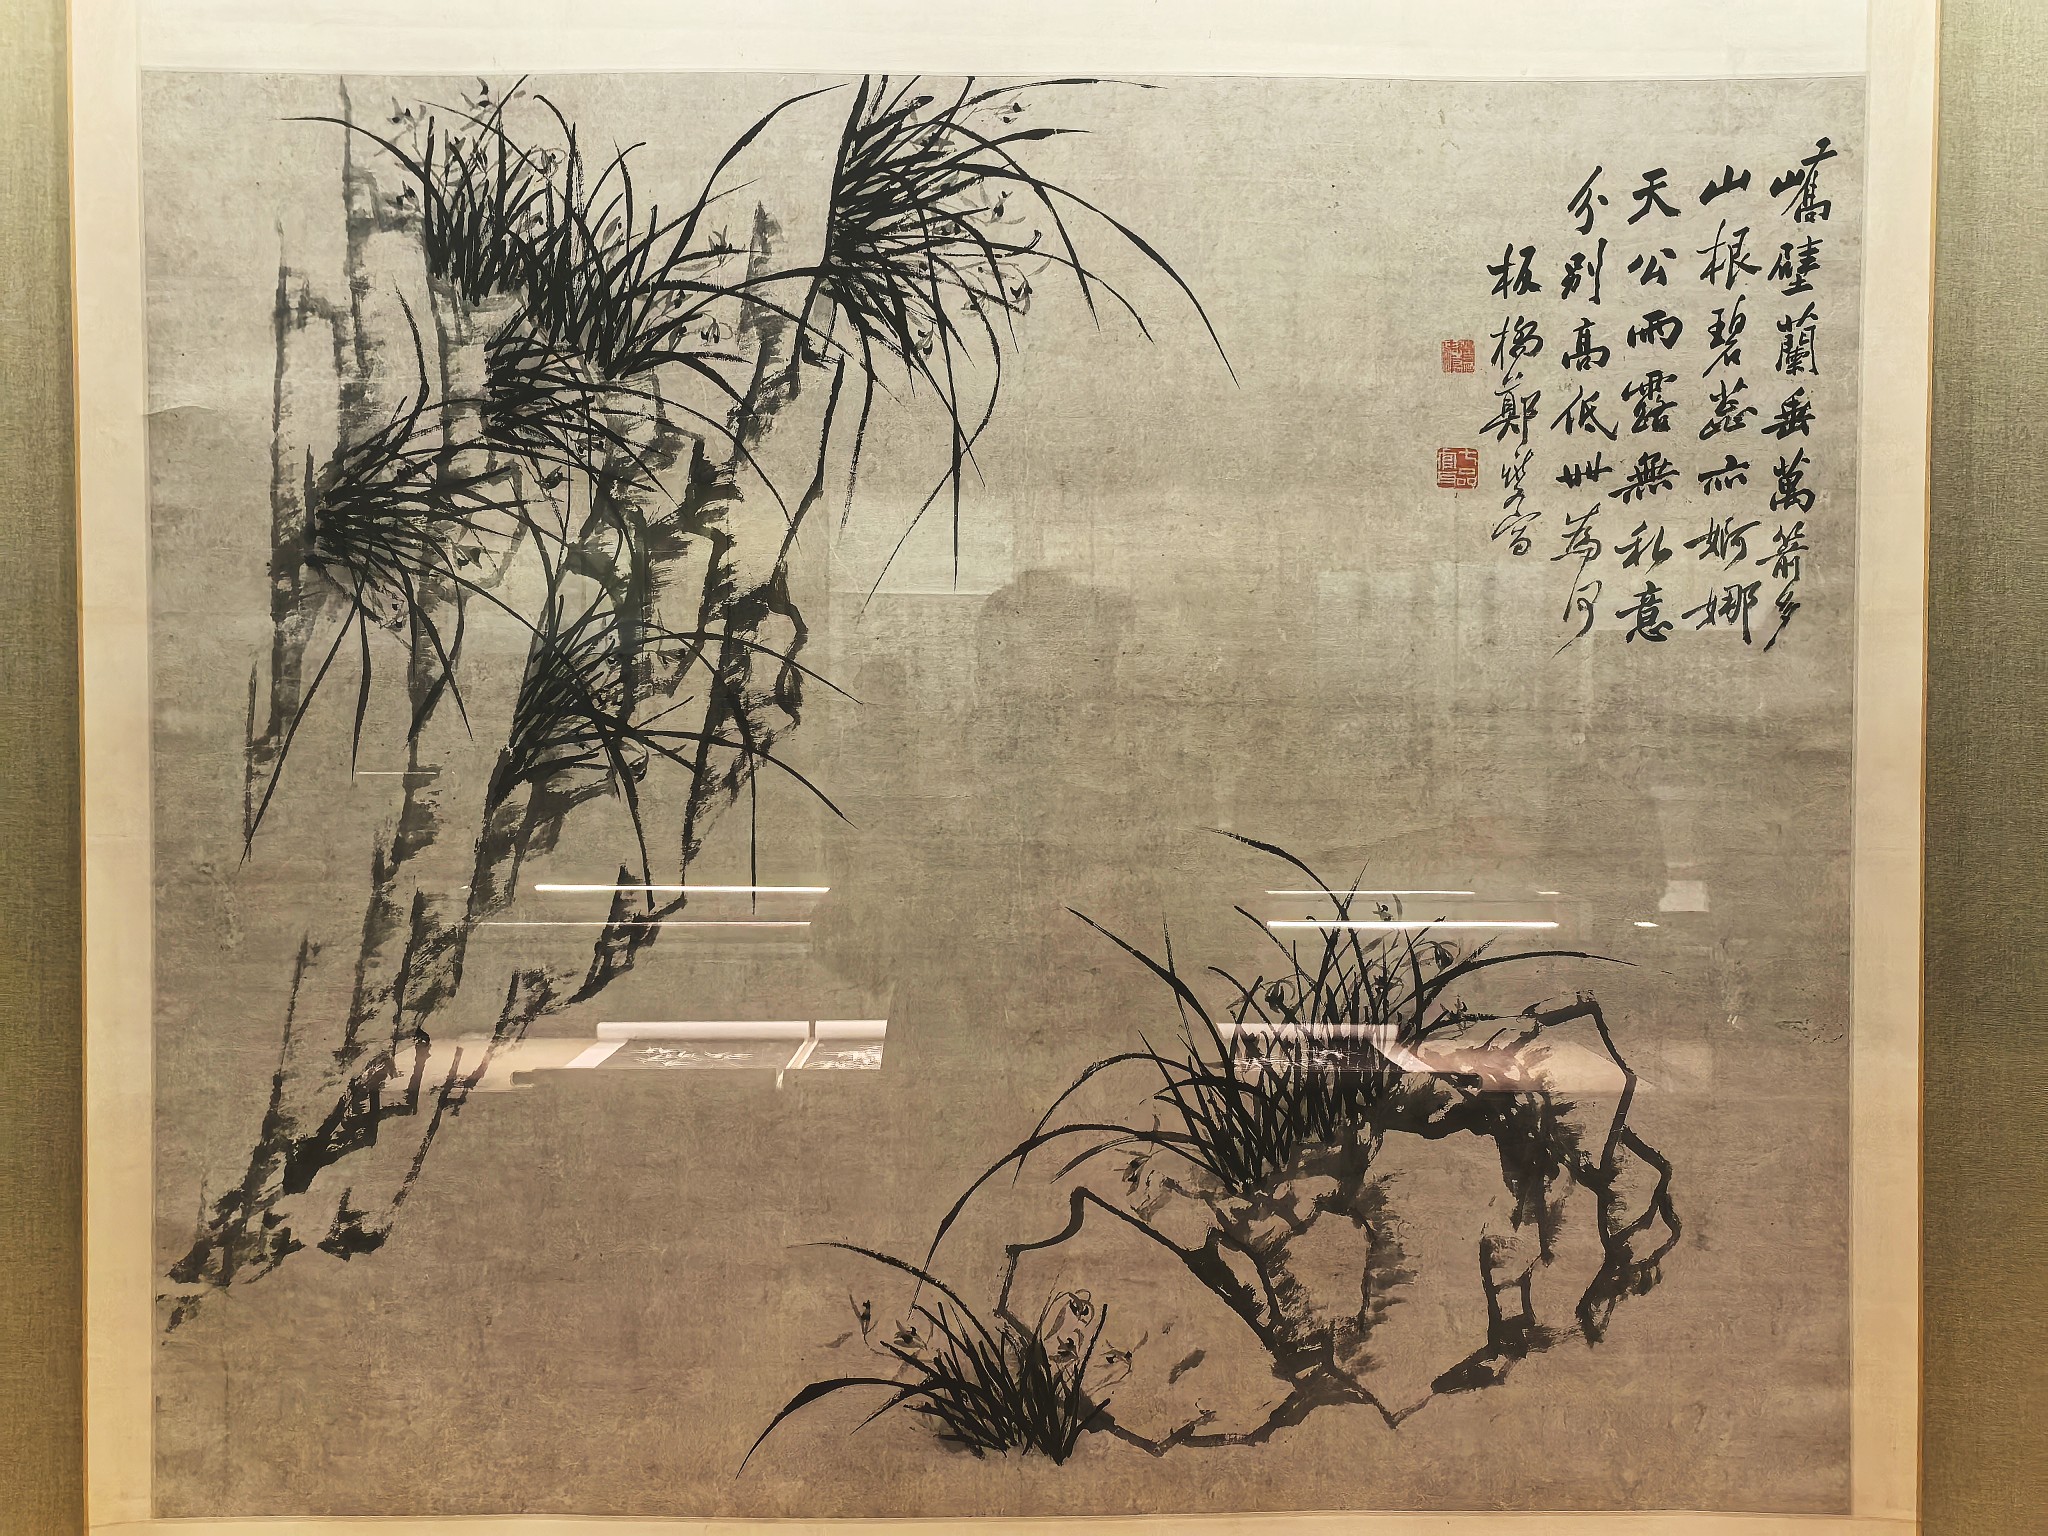 嶠壁蘭垂萬箭多
山根碧蕊亦婀娜
天公雨露無私意
分別高低世為何
板橋鄭燮寫
七品官耳